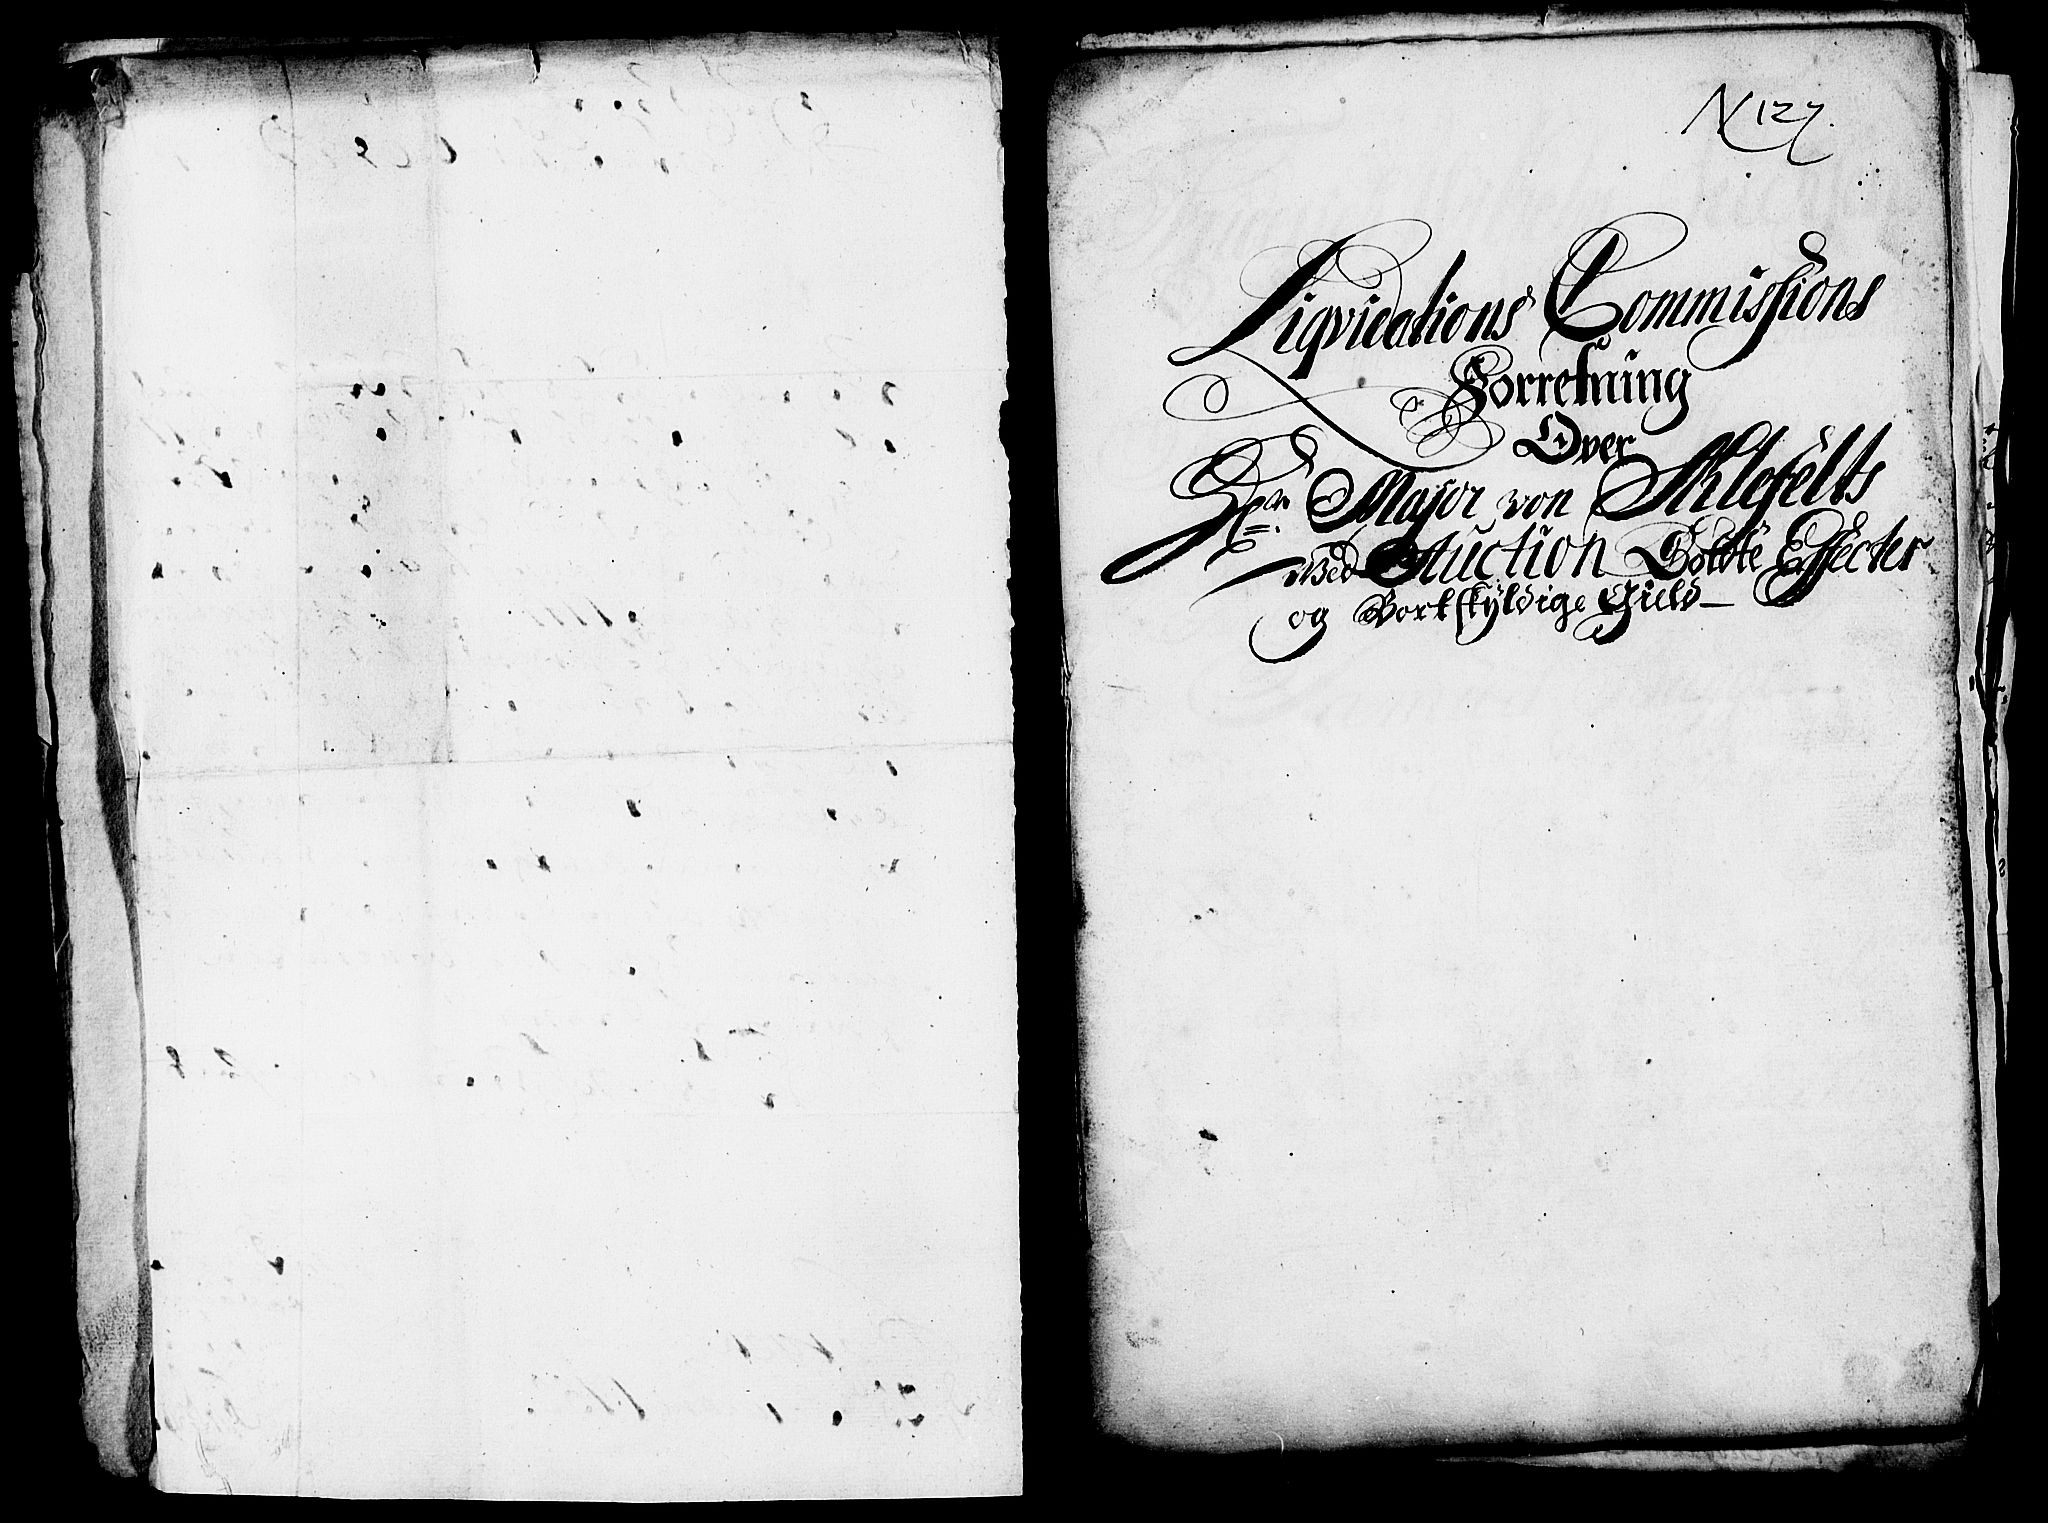 N 127.
Liqvidations Commissions
Forretning
Over
Hr. Major von Ahlefelts
Wed Auction Solte Effecter
og Bortskyldige Gield